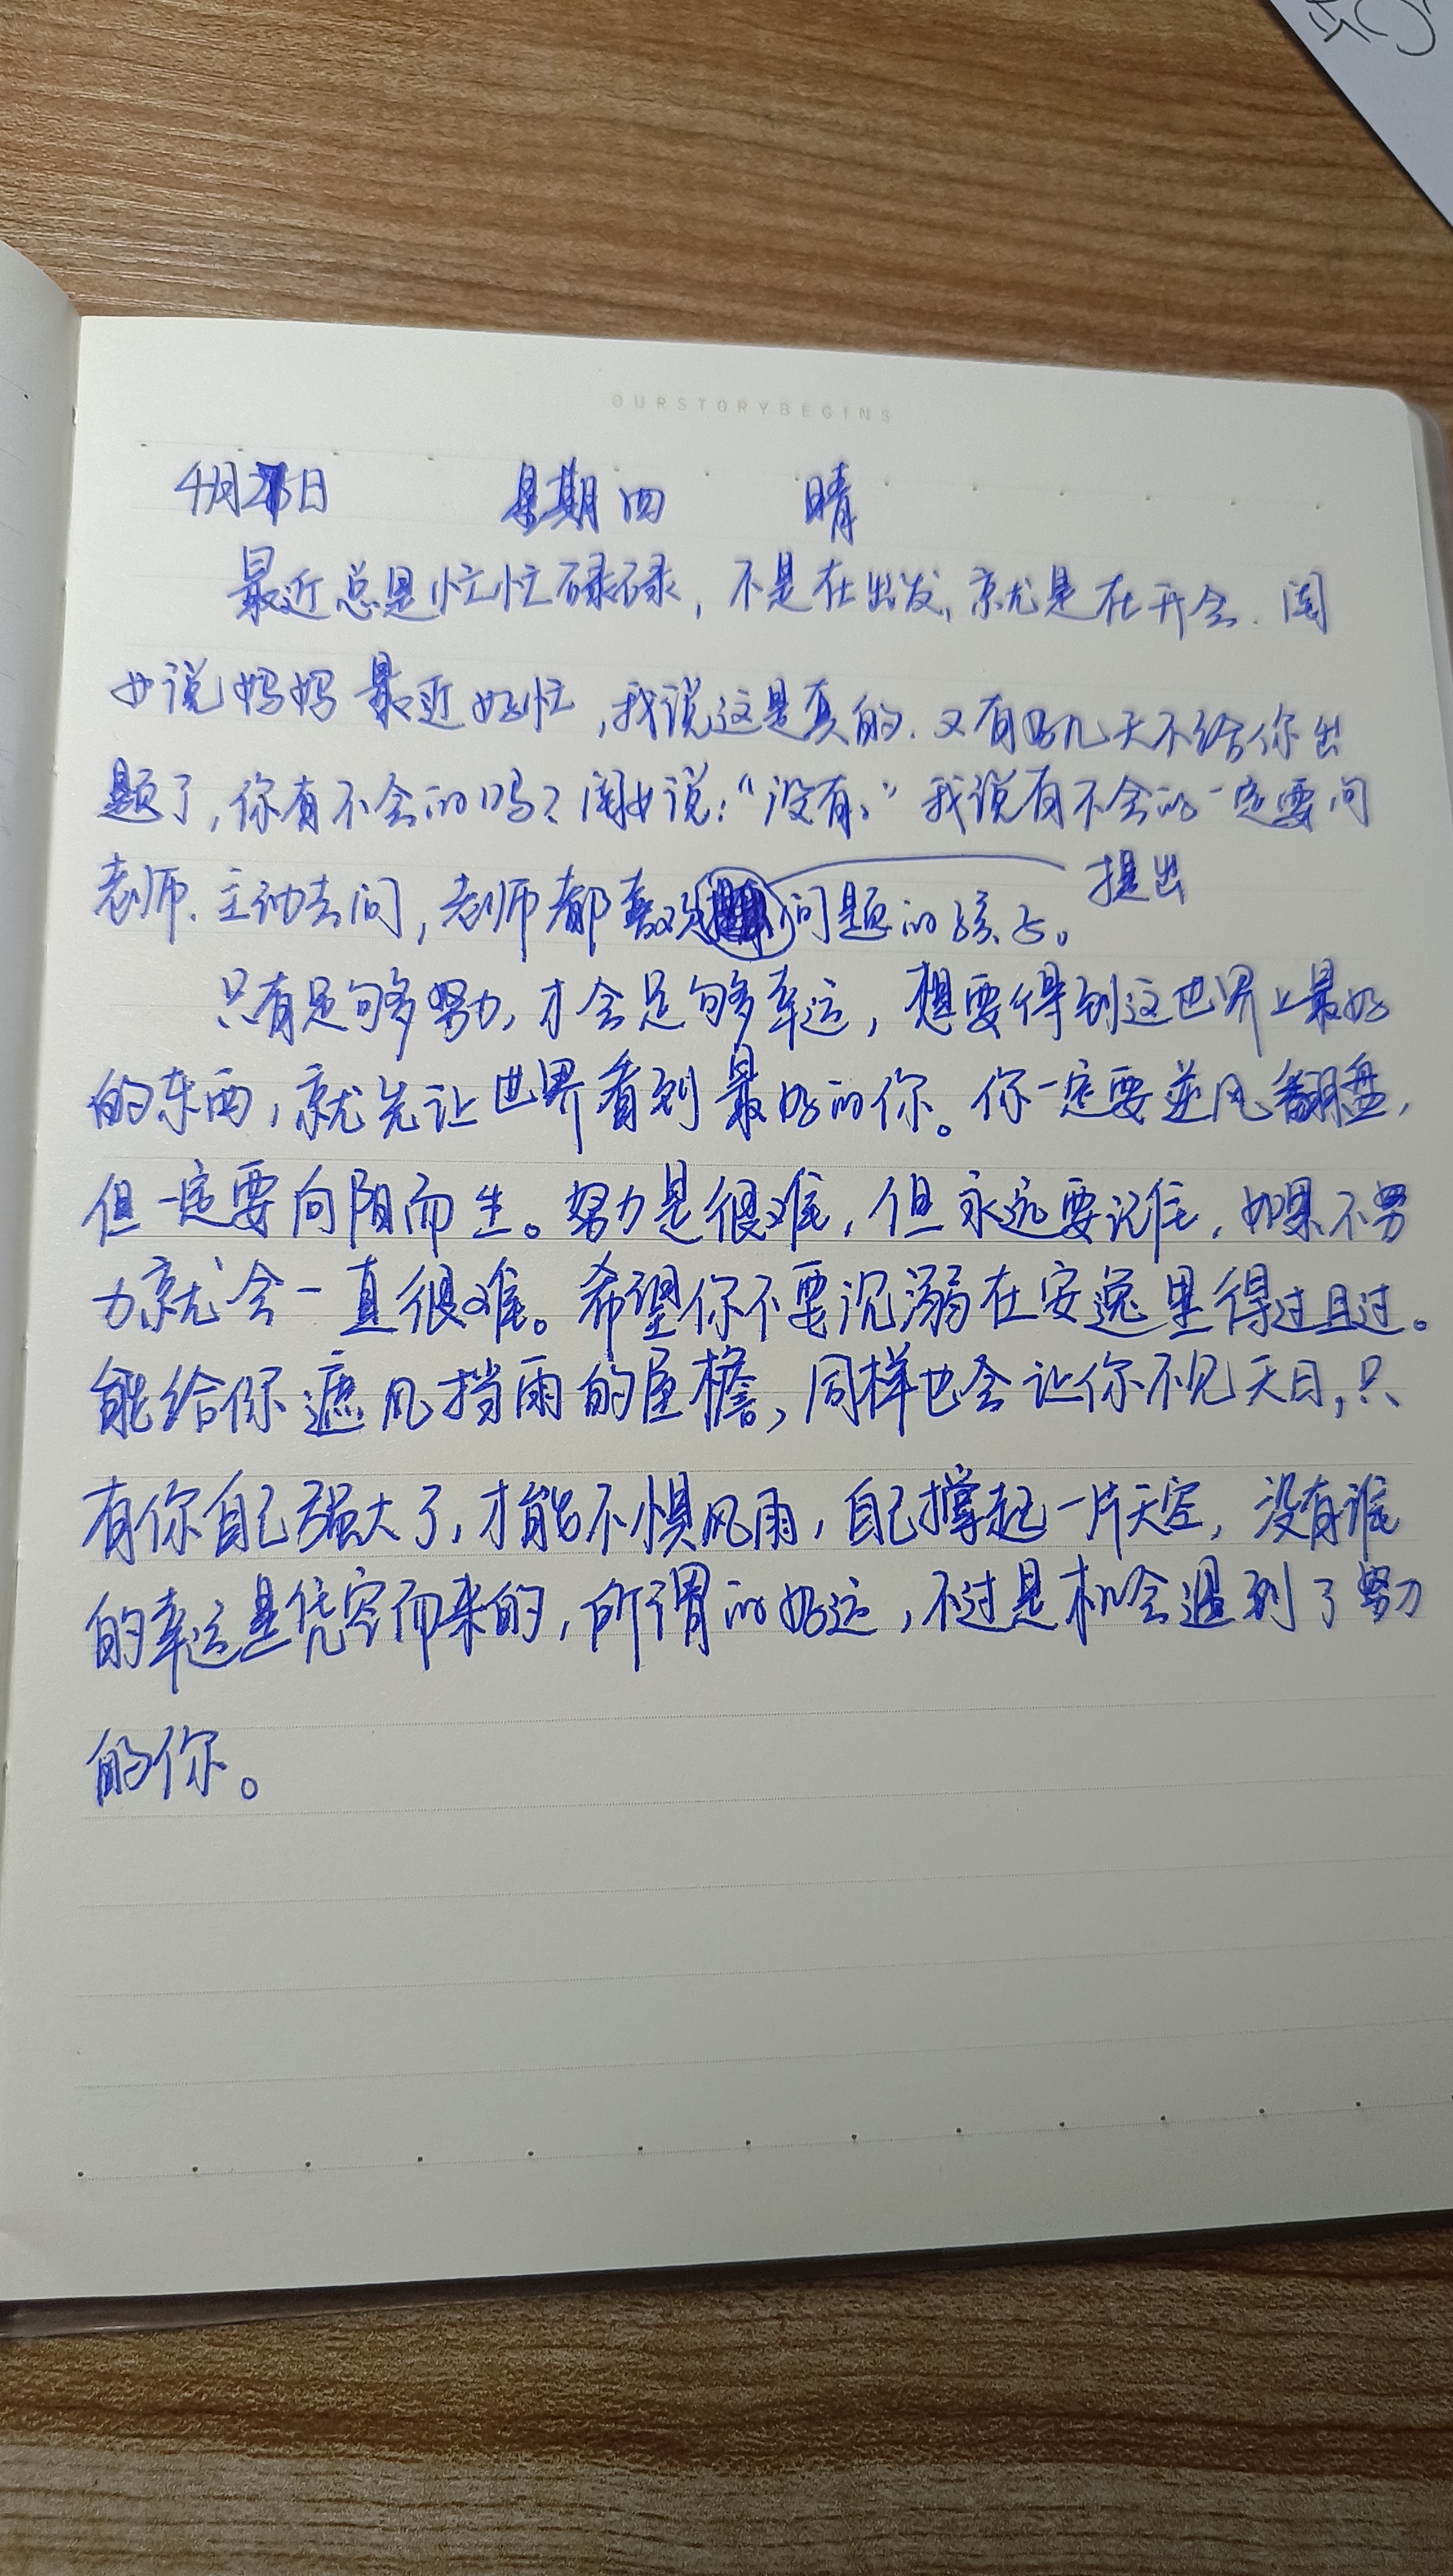 OURSTORYBEGINS
4月2日 星期四 晴
最近总是忙忙碌碌，不是在出发，就是在开会．闺
女说妈妈最近好忙，我说这是真的．又有好几天不给你出
题了，你有不会的吗？闺女说：“没有。”我说有不会的一定要问
老师．主动去问，老师都喜欢提出问题的孩子。
只有足够努力，才会足够幸运，想要得到这世界上最好
的东西，就先让世界看到最好的你。你一定要逆风翻盘，
但一定要向阳而生。努力是很难，但永远要记住，如果不努
力就会一直很难。希望你不要沉溺在安逸里得过且过。
能给你遮风挡雨的屋檐，同样也会让你不见天日，只
有你自己强大了，才能不惧风雨，自己撑起一片天空，没有谁
的幸运是凭空而来的，所谓的好运，不过是机会遇到了努力
的你。